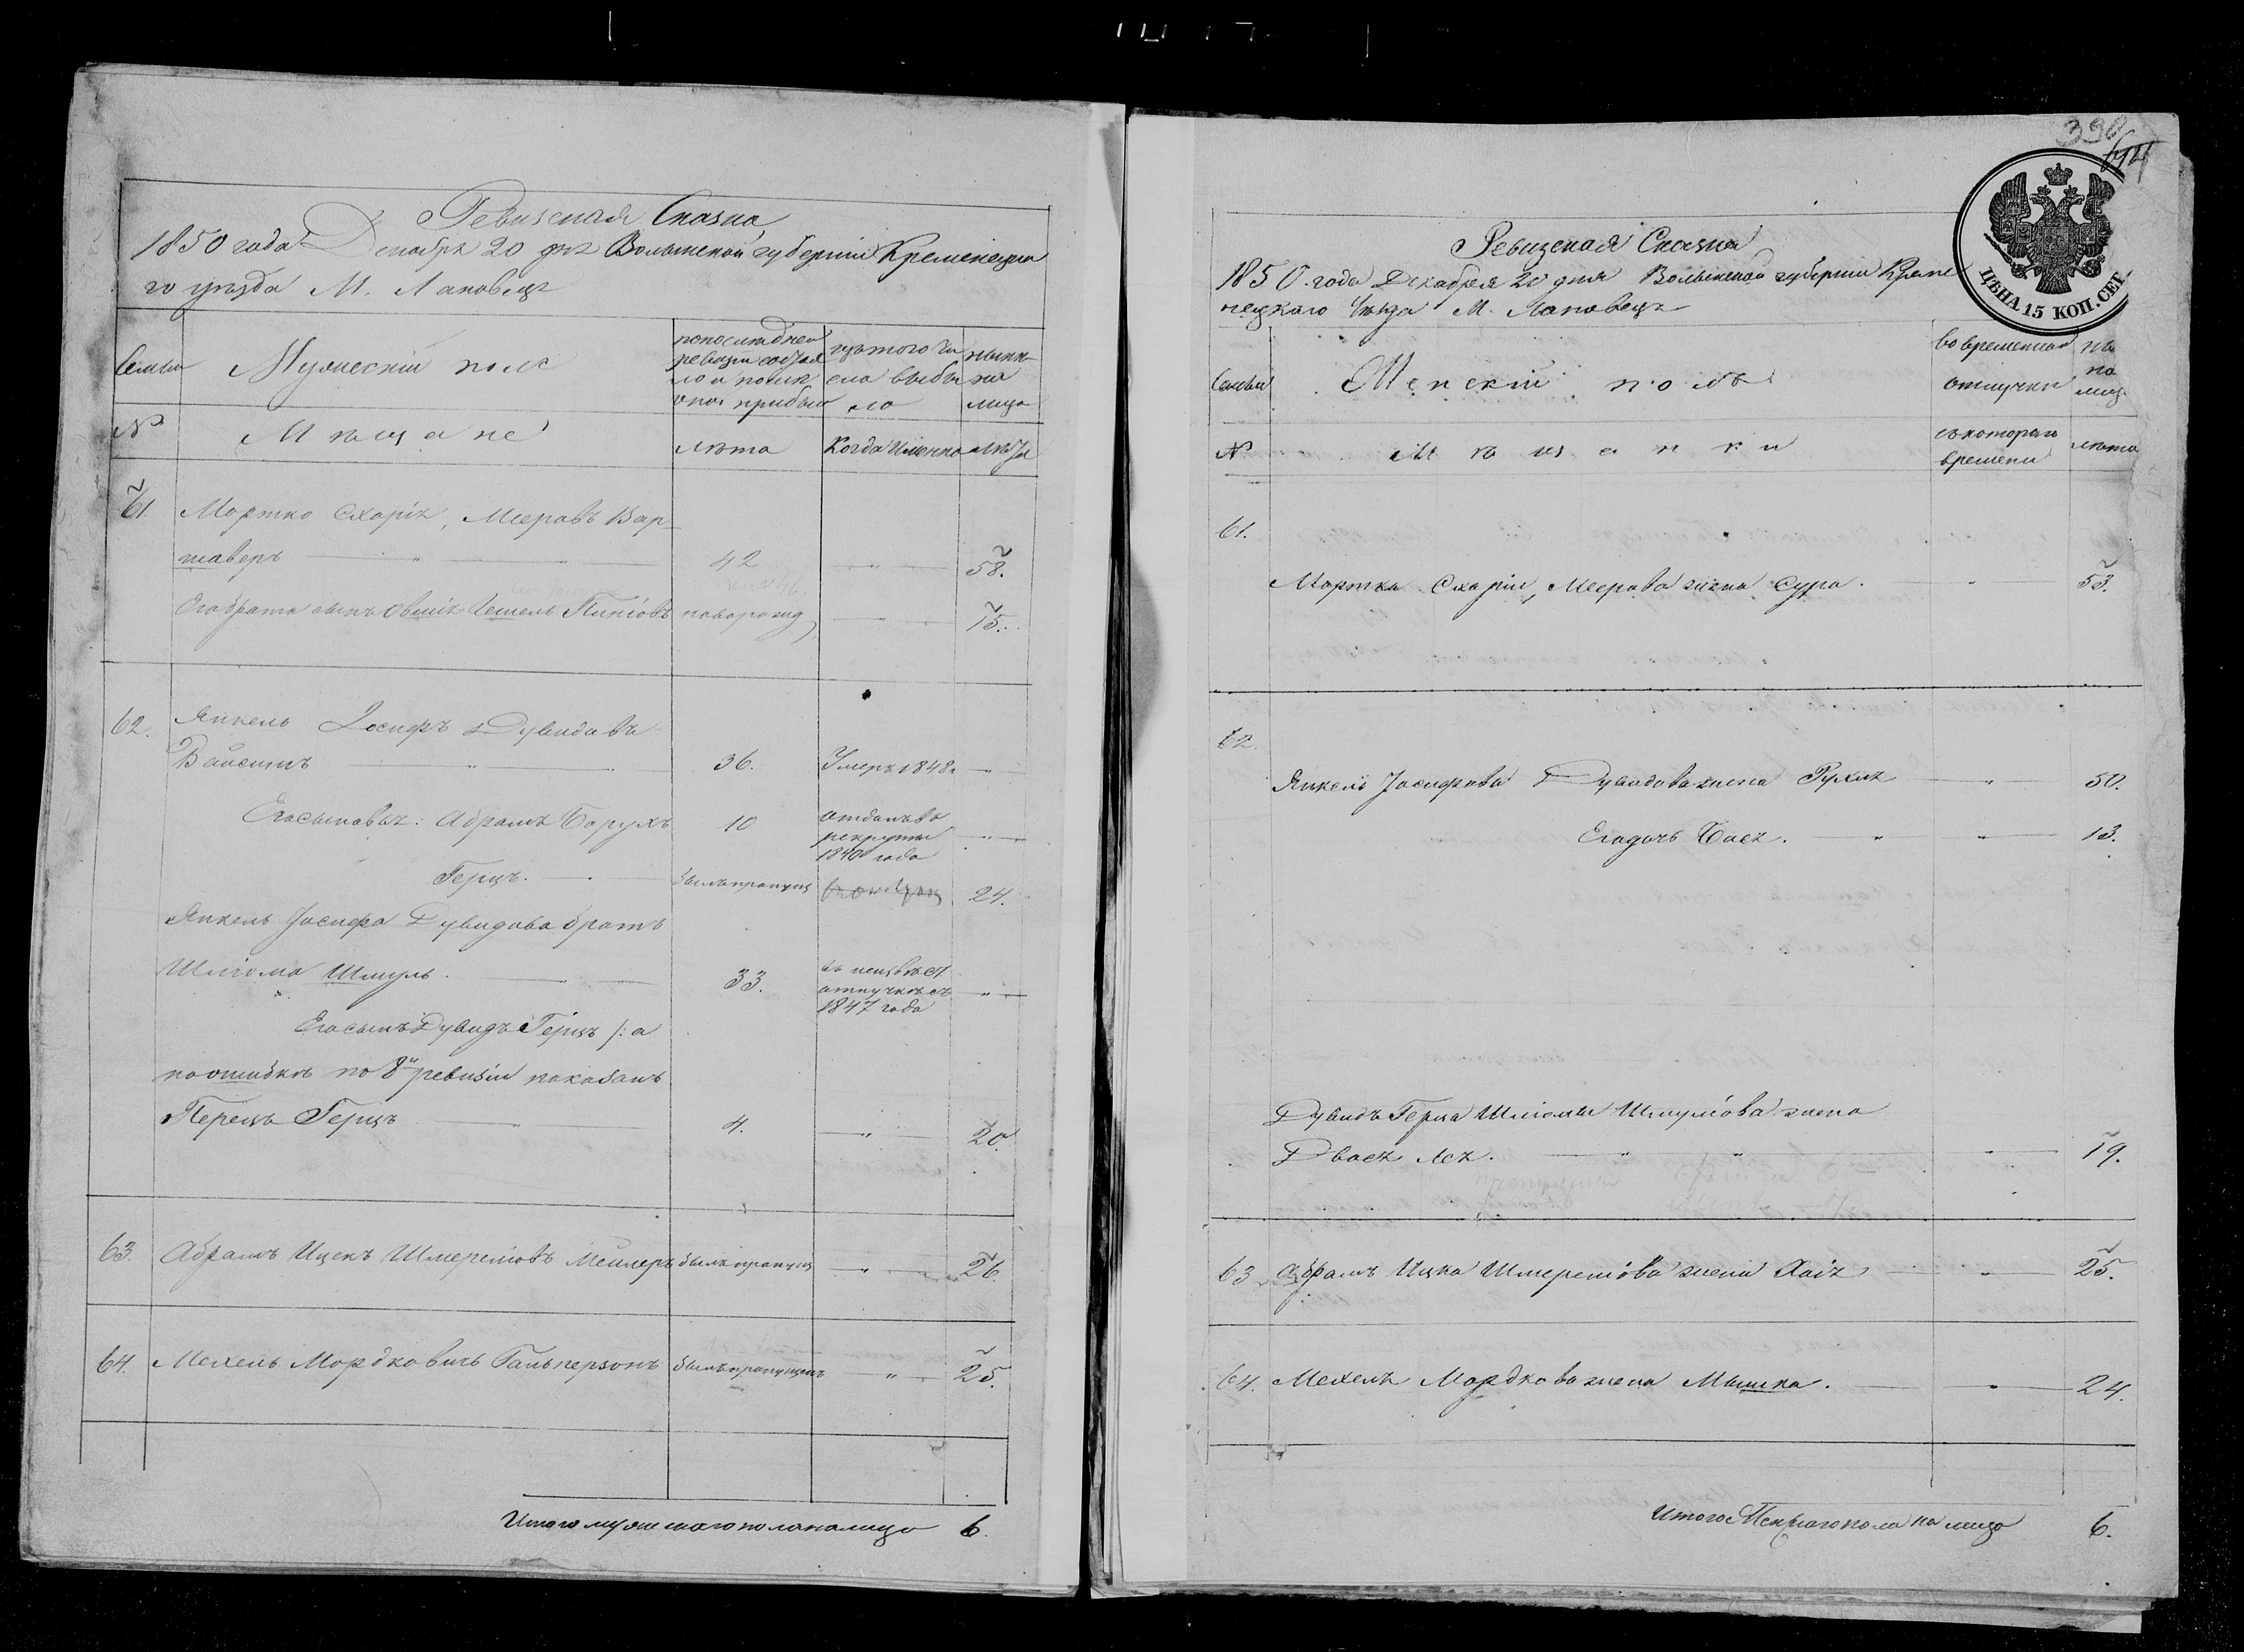 Ревизская Сказка
1850 года Декабря 20 дня Волынской губернии Кременецка
го уезда М. Лановец
Семьи
Мужеский полъ
по последней
ревизии состоя
ло и после
оной прибыло
изъ того чи
сла выбы
ло
ныне
на
лицо
№
Мещане
лета
Когда именно
лета
61.
Мортко Схаріе, Мееровъ Вар
шаверъ
42
58.
Его брата сынъ Овшіе Гешель Пинсовъ
новорожд
15.
62.
Янкель Іосифъ Дувидовъ
Вайсинъ
36.
Умеръ 1848
Его сыновья: Абрамъ Борухъ
10
отданъ въ
рекруты
1840 года
Герцъ.
былъ пропущ
24.
Янкель Іосифа Дувидова братъ
Шліома Шмуль.
33.
въ неизвест
отлучке съ
1847 года
Его сынъ Дувидъ Герцъ /: а
по ошибке по 8й ревизіи показанъ
Перецъ Герцъ
4.
20.
63.
Абрамъ Ицекъ Шмереліовъ Мейлеръ
былъ пропущ
26.
64.
Мехель Мордковичъ Гальперзонъ
былъ пропущенъ
25.
Итого мужескаго пола на лицо 6.
390
ЦЕНА 15 КОП. СЕР.
Ревизская Сказка
1850. года Декабря 20 дня Волынской губернии Креме
нецкаго Уезда М. Лановецъ
Семьи
Женский полъ
во временной
отлучке
на
лиц
№
Мещанки
съ котораго
времени
лета
61.
Мортка Схаріи, Меерова жена Сура.
53.
62.
Янкель Іосифова Дувидова жена Рухля
50.
Его дочь Бася.
13.
Дувидъ Герца Шліомы Шмулова жена
Двося Лея.
19.
63
Абрамъ Ицка Шмереліова жена Хаія
25.
64.
Мехель Мордкова жена Мышка.
24.
Итого Женскаго пола на лицо 6.